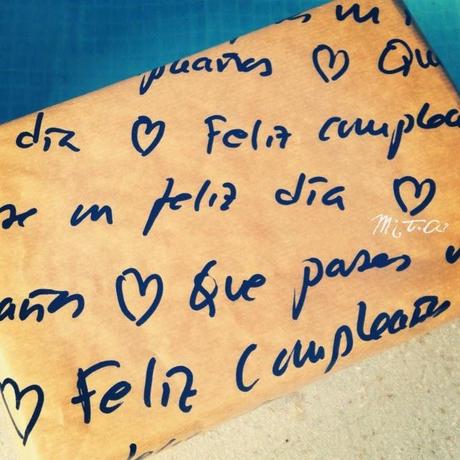 n
pleaños ♡ Qu
día ♡ Feliz complea
se un feliz día ♡
Mitxa
años ♡ Que pases
♡ Feliz Cumpleaños